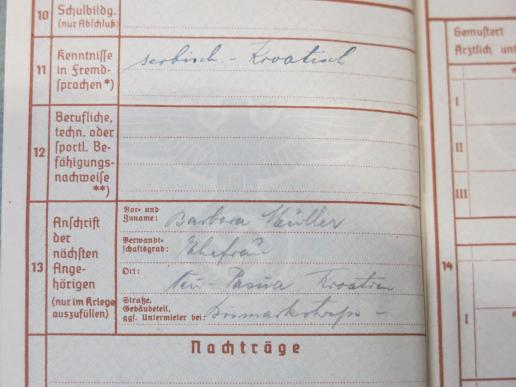 10 Schulbildg.
(nur Abschluß)
11 Kenntnisse
in Fremd-
sprachen*)
serbisch.- Kroatisch
12 Berufliche,
techn. oder
sportl. Be-
fähigungs-
nachweise
**)
13 Anschrift
der
nächsten
Ange-
hörigen
(nur im Kriege
auszufüllen)
Vor- und
Zuname: Barbara Müller
Verwandt-
schaftsgrad: Ehefrau
Ort: Neu-Pasua Kroatien
Straße,
Gebäudeteil,
ggf. Untermieter bei: Bismarkstrasse -
Nachträge
Gemustert
Ärztlich
I
II
III
14
I